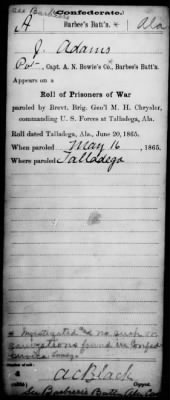 see Barbiere's
Confederate.
A Barbee's Batt'n. * Ala
J. Adams
Pvt, Capt. A. N. Bowie's Co., Barbee's Batt'n.
Appears on a
Roll of Prisoners of War
paroled by Brevt. Brig. Gen'l M. H. Chrysler,
commanding U. S. Forces at Talladega, Ala.
Roll dated Talladega, Ala., June 20, 1865.
When paroled May 16, 1865.
Where paroled Talladega
* Investigated and no such or-
ganizations found in Confed
service
A C Black
See Barbiere's Batt. Ala Cav